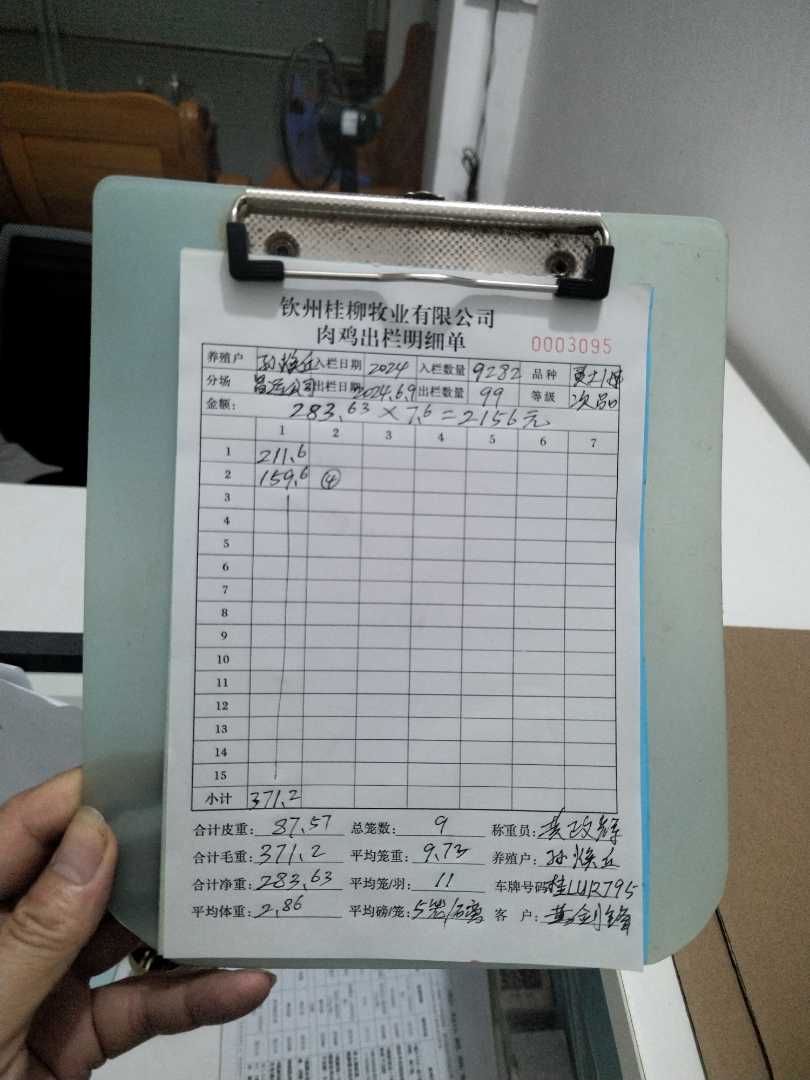 钦州桂柳牧业有限公司
肉鸡出栏明细单
0003095
养殖户 孙焕丘 入栏日期 2024 入栏数量 9282 品种
分场 昌运公司 出栏日期 2024.6.9 出栏数量 99 等级 次品
金额: 283.63 × 7.6 = 2156元
1 2 3 4 5 6 7
1 211.6
2 159.6 ④
3
4
5
6
7
8
9
10
11
12
13
14
15
小计 371.2
合计皮重: 87.57 总笼数: 9 称重员: 黄政辉
合计毛重: 371.2 平均笼重: 9.73 养殖户: 孙焕丘
合计净重: 283.63 平均笼/羽: 11 车牌号码: 桂LUR795
平均体重: 2.86 平均磅/笼: 客 户: